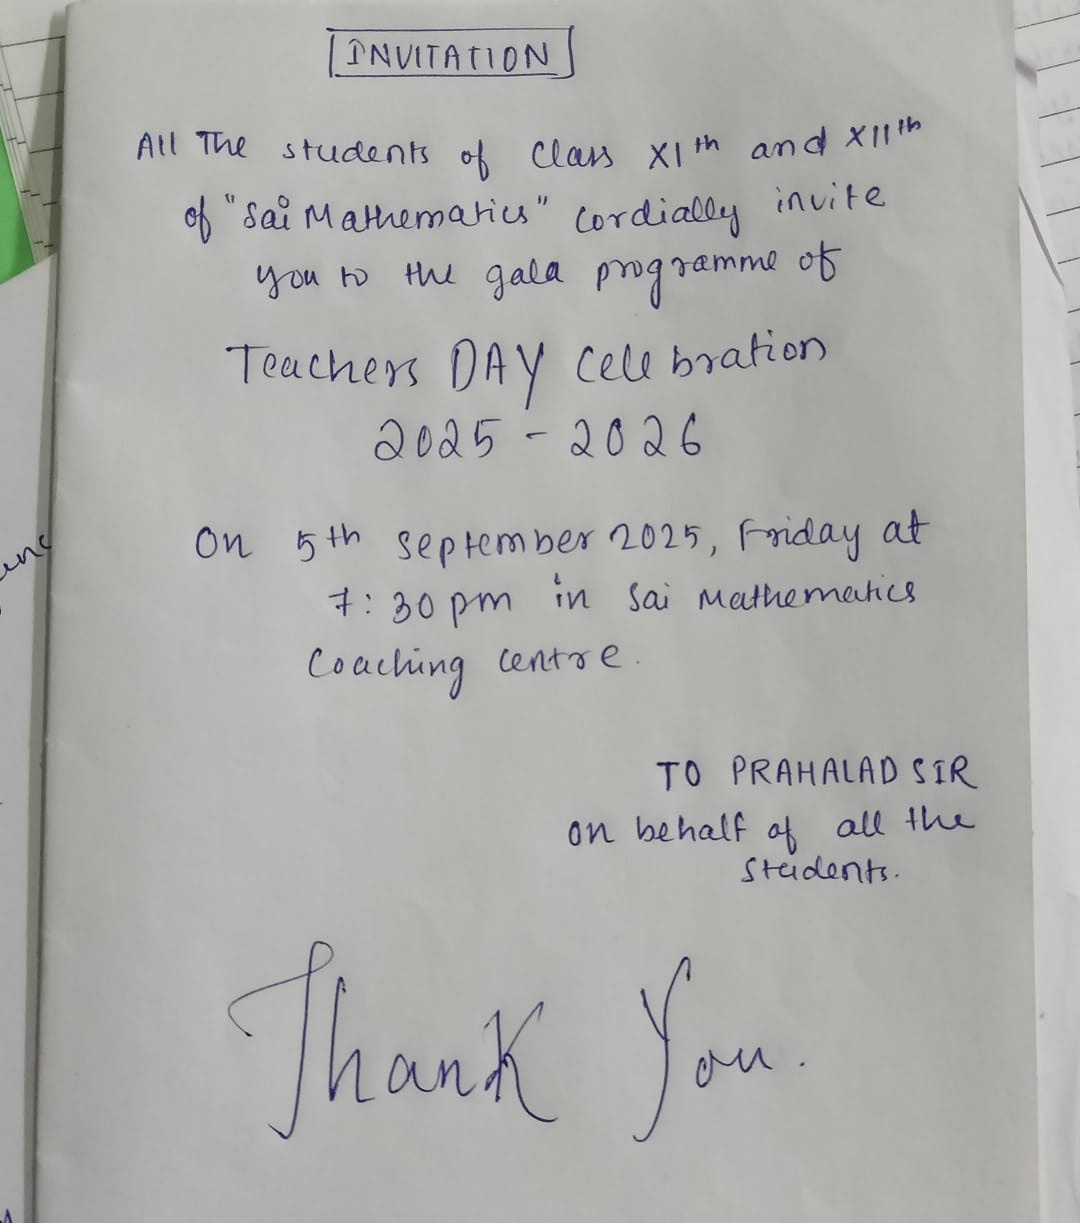 INVITATION
All The students of Class XIth and XIIth
of "Sai Mathematics" Cordially invite
you to the gala programme of
Teachers DAY Celebration
2025 - 2026
On 5th September 2025, Friday at
7:30 pm in Sai Mathematics
Coaching Centre.
TO PRAHALAD SIR
on behalf of all the
students.
Thank You.